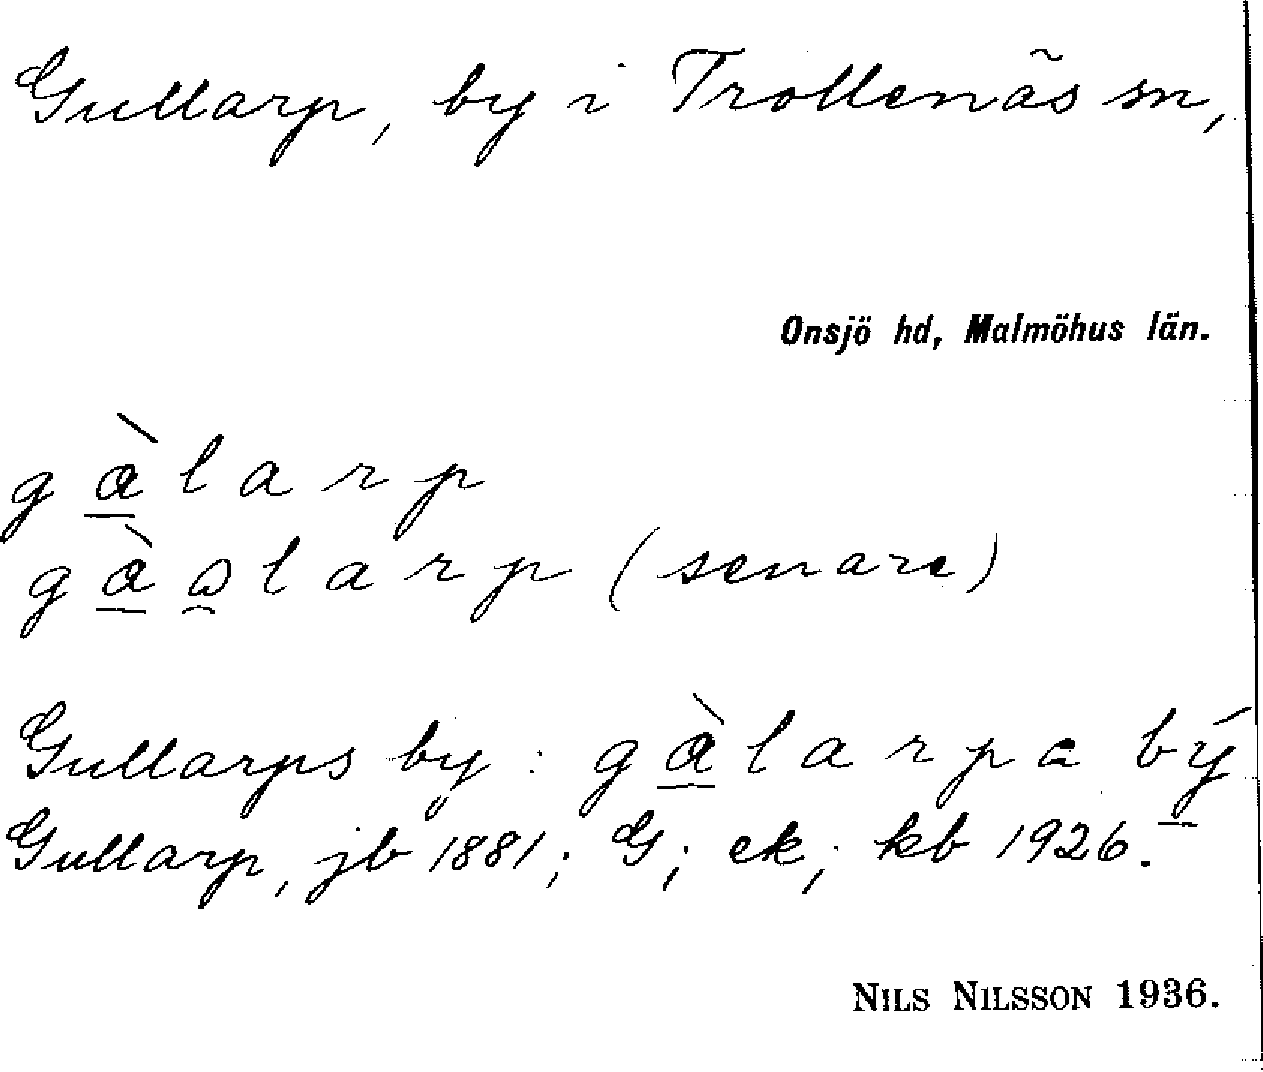 Gullarp, by i Trollenäs sn,
Onsjö hd, Malmöhus län.
gàlarp
gàalarp (senare)
Gullarps by : gàlarpa bý
Gullarp, jb 1881; G; ek; kb 1926.
NILS NILSSON 1936.